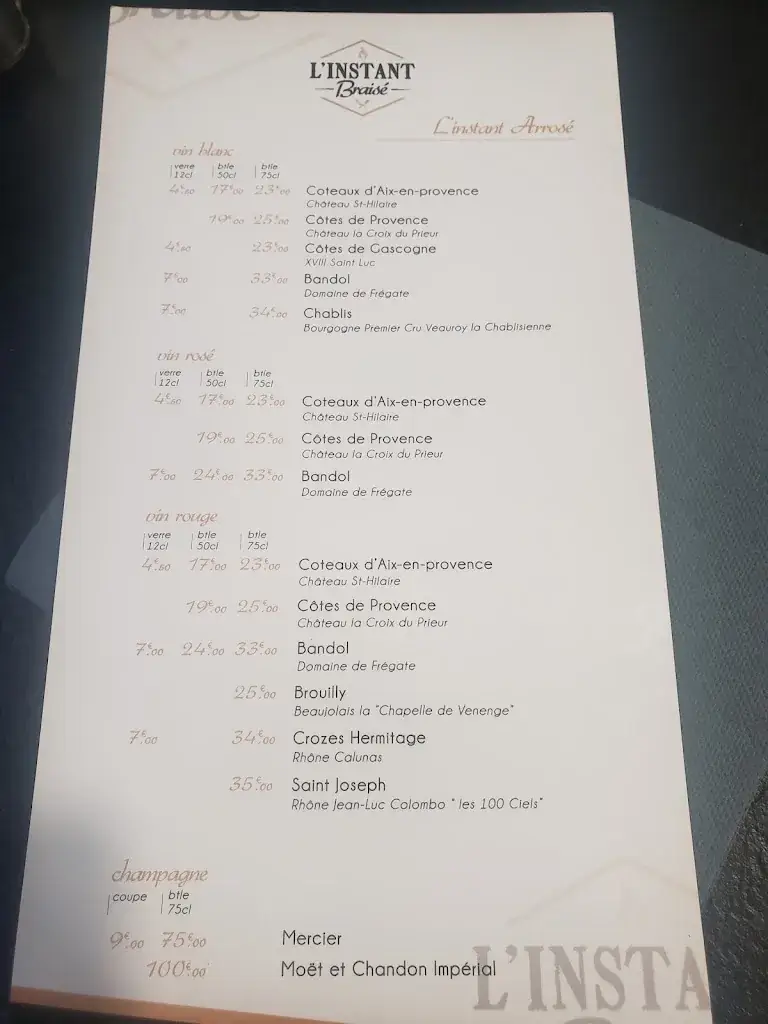 L'INSTANT
Braisé
L'instant Arrosé
vin blanc
verre 12cl btle 50cl btle 75cl
4€50 17€00 23€00 Coteaux d'Aix-en-provence
Château St-Hilaire
19€00 25€00 Côtes de Provence
Château la Croix du Prieur
4€50 23€00 Côtes de Gascogne
XVIII Saint Luc
7€00 33€00 Bandol
Domaine de Frégate
7€00 34€00 Chablis
Bourgogne Premier Cru Veauroy la Chablisienne
vin rosé
verre 12cl btle 50cl btle 75cl
4€50 17€00 23€00 Coteaux d'Aix-en-provence
Château St-Hilaire
19€00 25€00 Côtes de Provence
Château la Croix du Prieur
7€00 24€00 33€00 Bandol
Domaine de Frégate
vin rouge
verre 12cl btle 50cl btle 75cl
4€50 17€00 23€00 Coteaux d'Aix-en-provence
Château St-Hilaire
19€00 25€00 Côtes de Provence
Château la Croix du Prieur
7€00 24€00 33€00 Bandol
Domaine de Frégate
25€00 Brouilly
Beaujolais la "Chapelle de Venenge"
7€00 34€00 Crozes Hermitage
Rhône Calunas
35€00 Saint Joseph
Rhône Jean-Luc Colombo " les 100 Ciels"
champagne
coupe btle 75cl
9€00 75€00 Mercier
100€00 Moët et Chandon Impérial
L'INSTA